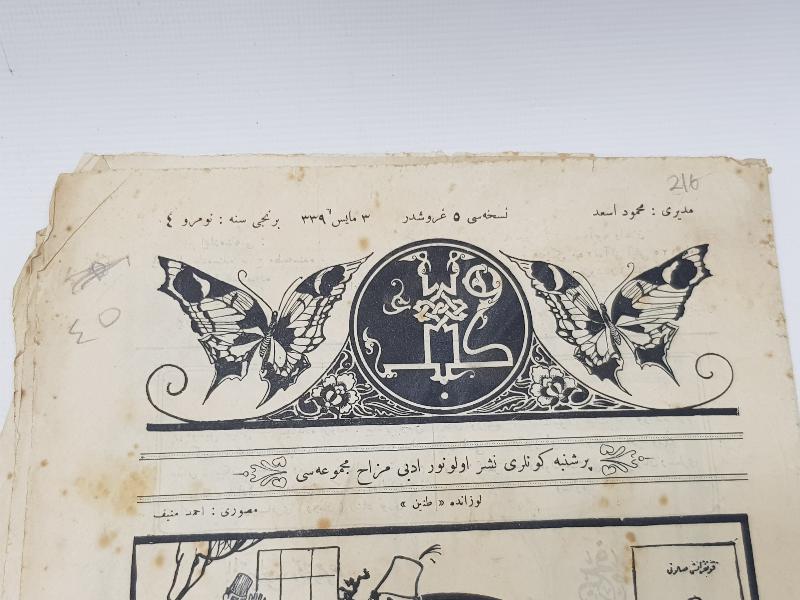 216
مدیری : محمود اسعد نسخه‌سی ٥ غروشدر ٣ مایس ٣٣٩ برنجی سنه : نومرو ٤
كلبك
٤٥
پرشنبه كونلری نشر اولونور ادبی مزاح مجموعه‌سی
لوزانده « طنین »
مصوری : احمد منیف
قونفرانس صالونی